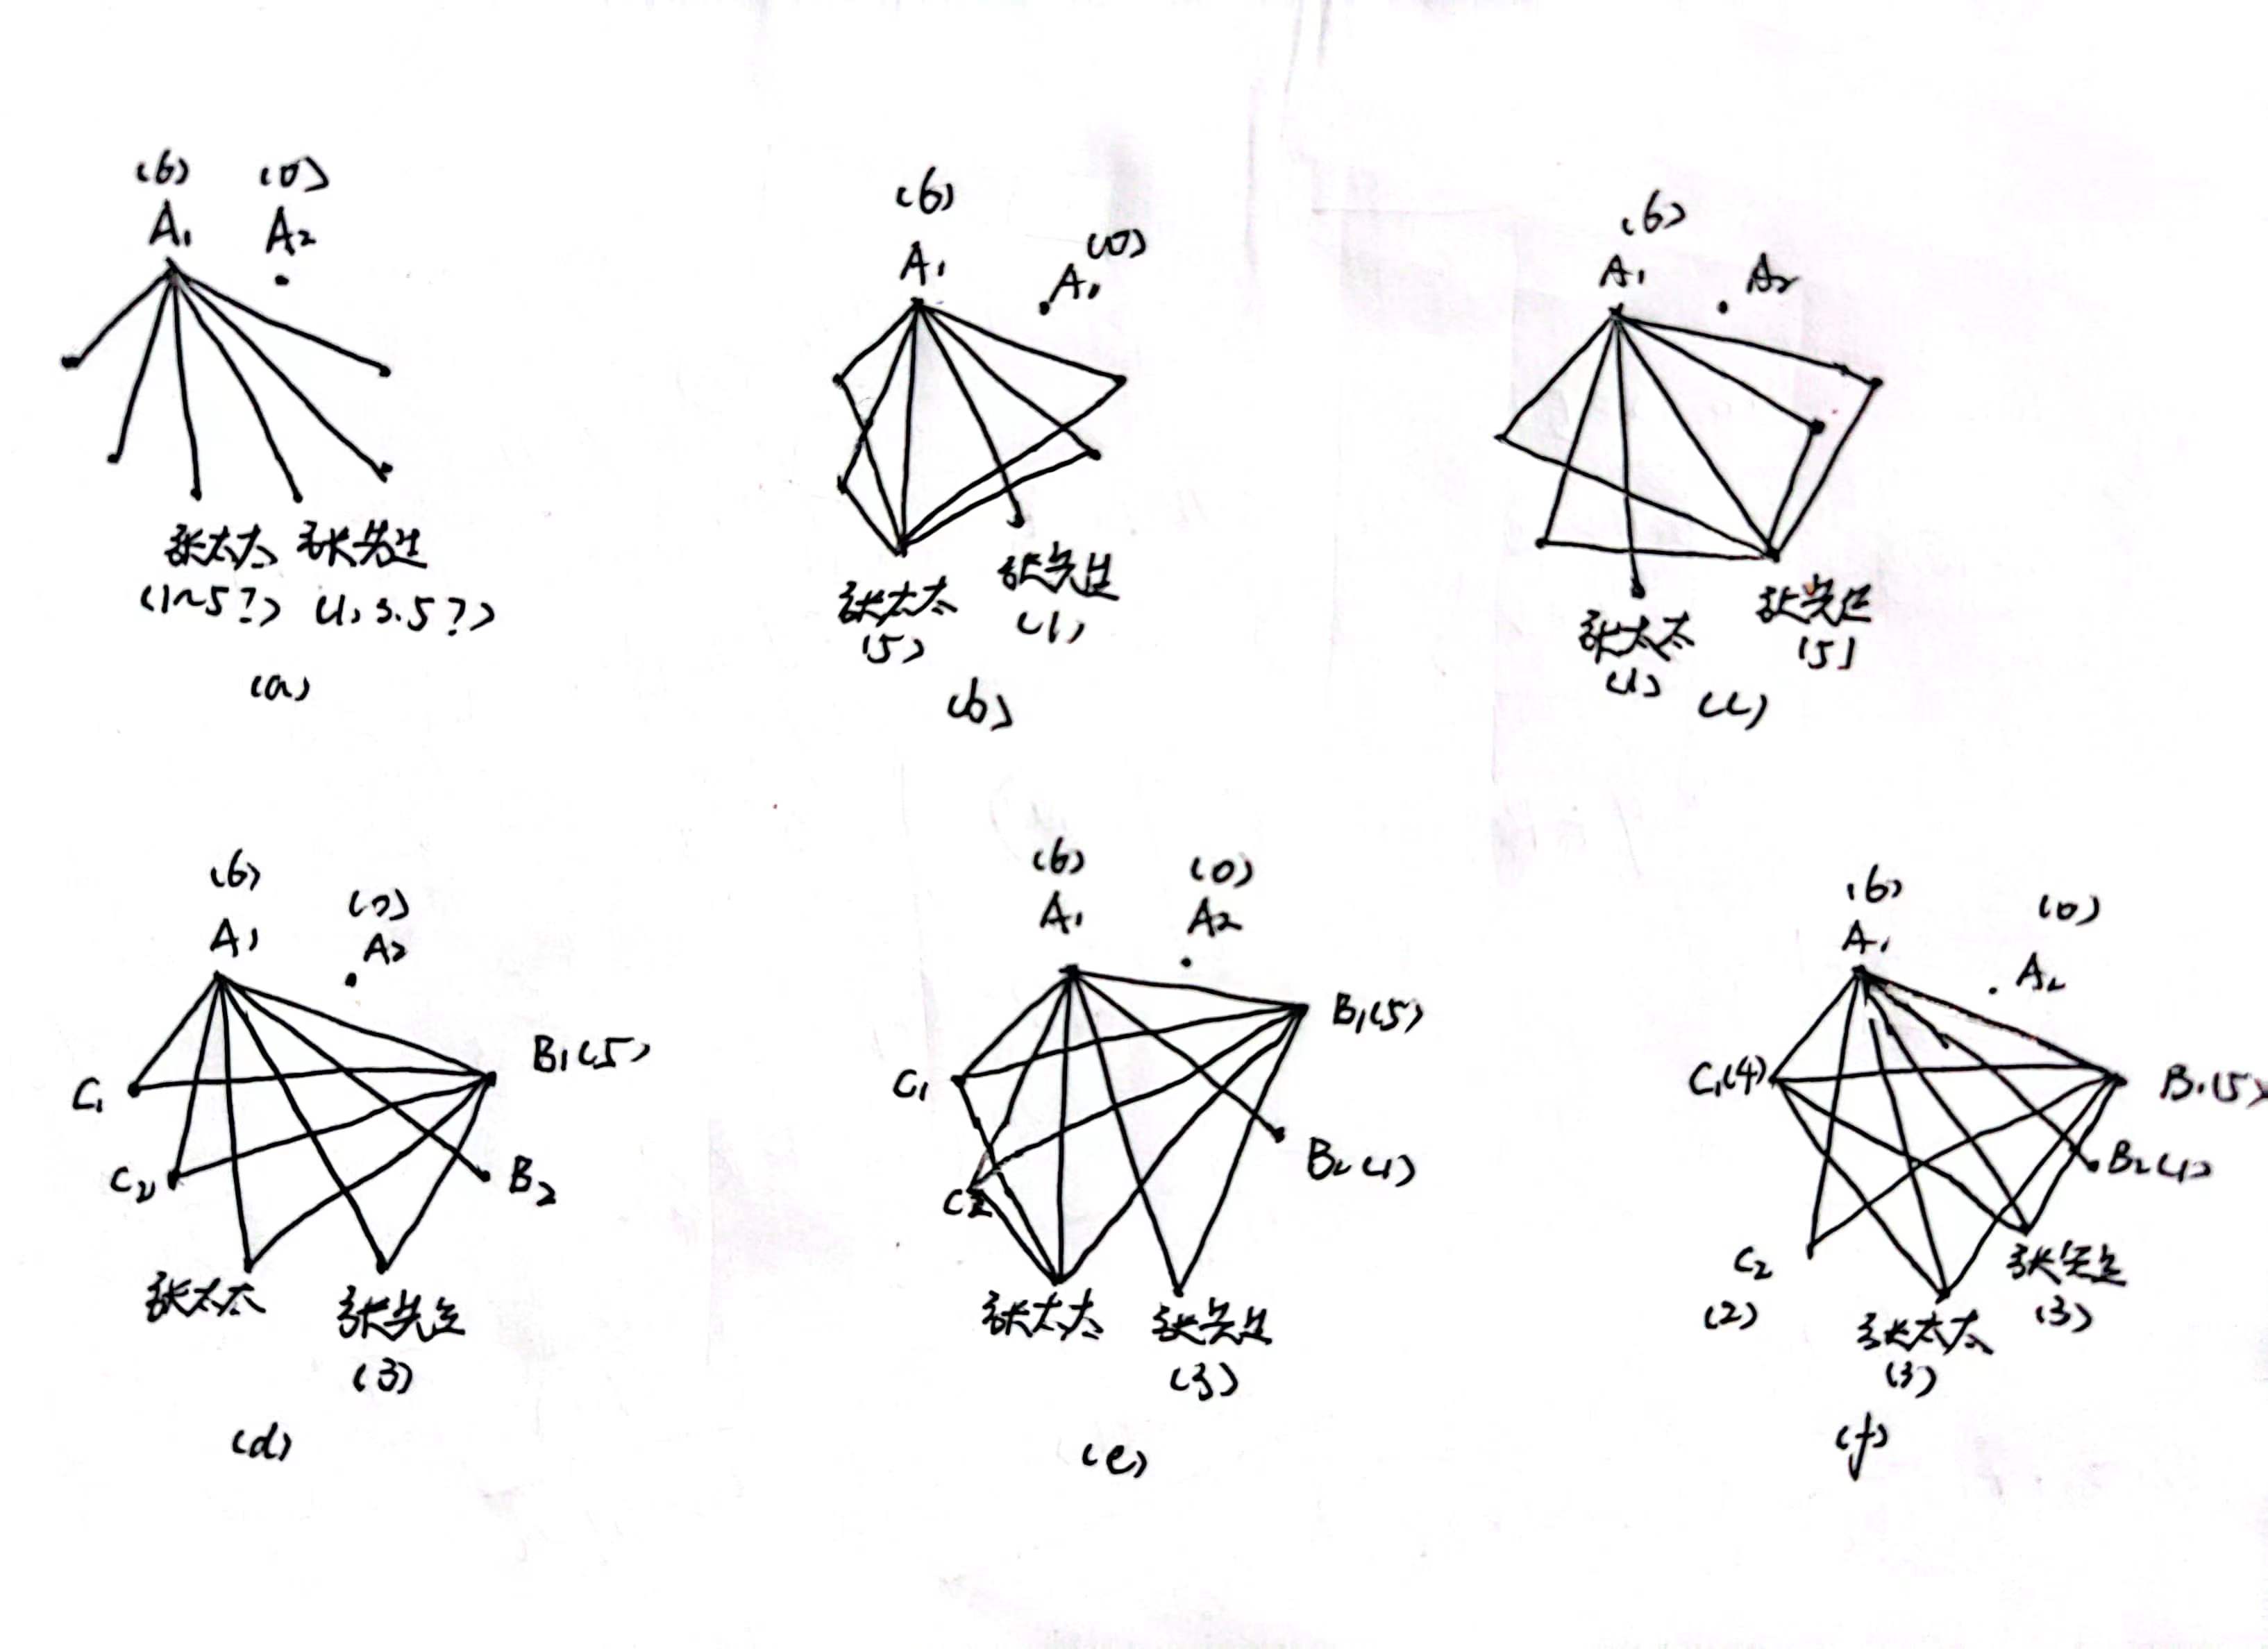 (6) (0)
A1 A2
张太太 张先生
(1~5?) (1,3.5?)
(a)
(6)
A1
(0)
A1
张太太
(5)
张先生
(1)
(b)
(6)
A1 A2
张太太
(1)
张先生
(5)
(c)
(6)
A1
(0)
A2
B1(5)
C1
C2
B2
张太太 张先生
(3)
(d)
(6) (0)
A1 A2
B1(5)
C1
B2(1)
C2
张太太 张先生
(3)
(e)
(6)
A1
(0)
A2
C1(4)
B1(5)
B2(1)
C2
(2)
张先生
(3)
张太太
(3)
(f)